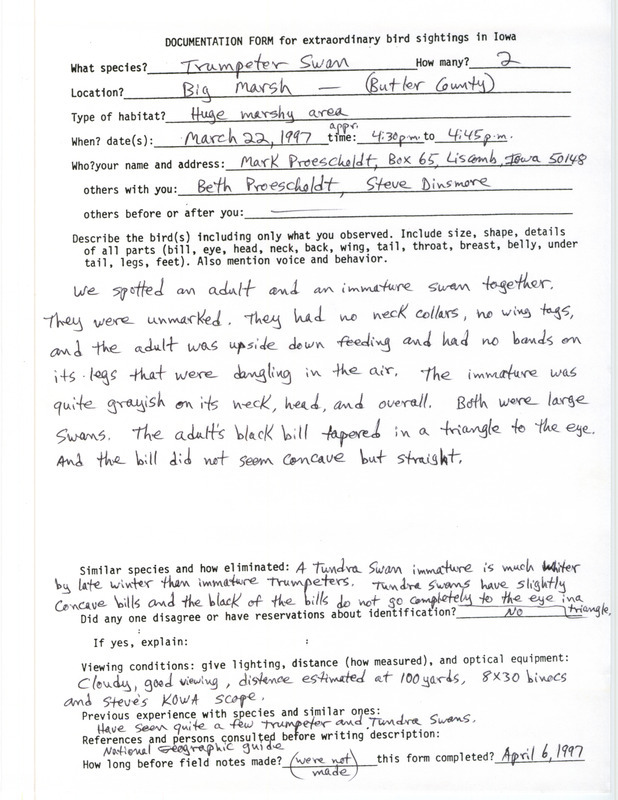 DOCUMENTATION FORM for extraordinary bird sightings in Iowa
What species? Trumpeter Swan How many? 2
Location? Big Marsh — (Butler County)
Type of habitat? Huge marshy area
When? date(s): March 22, 1997 appr. time: 4:30 p.m. to 4:45 p.m.
Who? your name and address: Mark Proescholdt, Box 65, Liscomb, Iowa 50148
others with you: Beth Proescholdt, Steve Dinsmore
others before or after you: —
Describe the bird(s) including only what you observed. Include size, shape, details
of all parts (bill, eye, head, neck, back, wing, tail, throat, breast, belly, under
tail, legs, feet). Also mention voice and behavior.
We spotted an adult and an immature swan together.
They were unmarked. They had no neck collars, no wing tags,
and the adult was upside down feeding and had no bands on
its legs that were dangling in the air. The immature was
quite grayish on its neck, head, and overall. Both were large
swans. The adult's black bill tapered in a triangle to the eye.
And the bill did not seem concave but straight.
Similar species and how eliminated: A Tundra Swan immature is much whiter
by late winter than immature Trumpeters. Tundra Swans have slightly
concave bills and the black of the bills do not go completely to the eye in a
triangle.
Did any one disagree or have reservations about identification? No
If yes, explain:
Viewing conditions: give lighting, distance (how measured), and optical equipment:
Cloudy, good viewing, distance estimated at 100 yards, 8X30 binocs
and Steve's KOWA scope.
Previous experience with species and similar ones:
Have seen quite a few Trumpeter and Tundra Swans.
References and persons consulted before writing description:
National Geographic guide
How long before field notes made? (were not made) this form completed? April 6, 1997